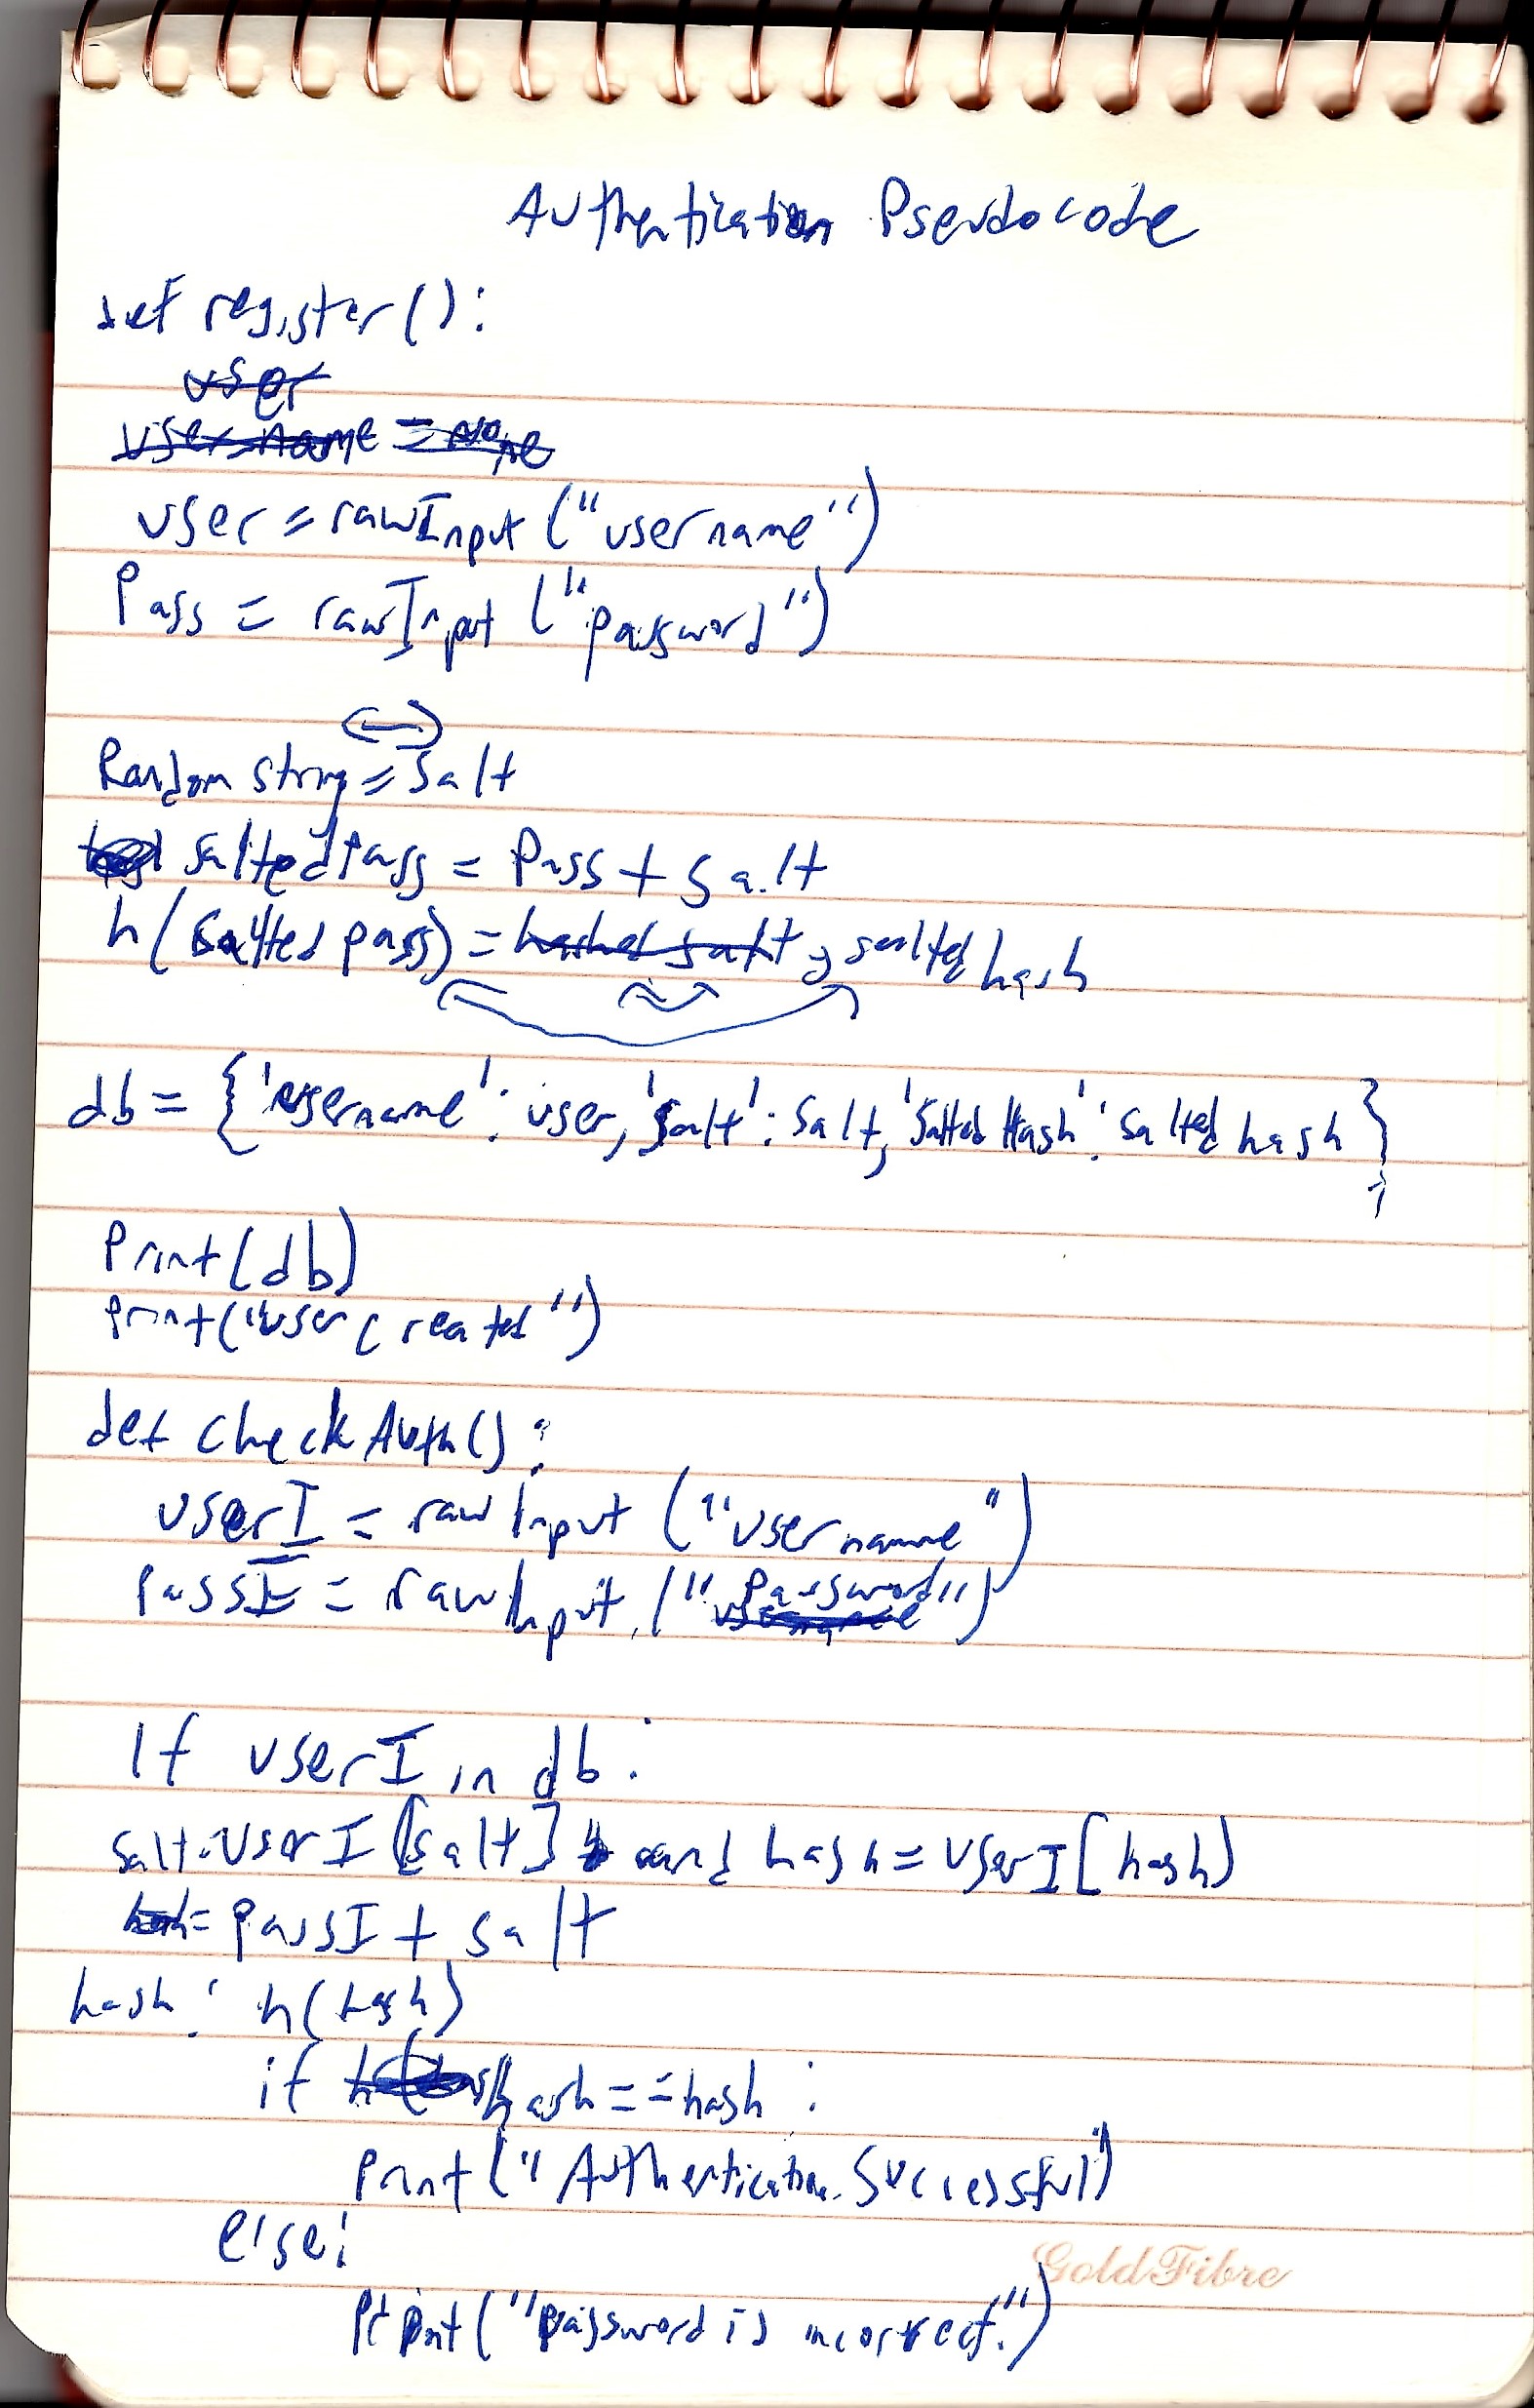 Authentication Pseudocode
def register():
user
username = none
user = rawInput ("username")
Pass = rawInput ("password")
Random string = Salt
salted Pass = Pass + Salt
h(salted pass) = hashed salt, salted hash
db = {'username': user, 'salt': salt, 'Salted Hash': salted hash}
Print(db)
print("user created")
def checkAuth():
userI = rawInput ("username")
passI = rawInput ("password")
username
If userI in db:
salt = userI[salt] and hash = userI[hash)
hash = passI + salt
hash: h(hash)
if hash == hash:
Print("Authentication Successful")
else:
Print("password is incorrect.")
GoldFibre